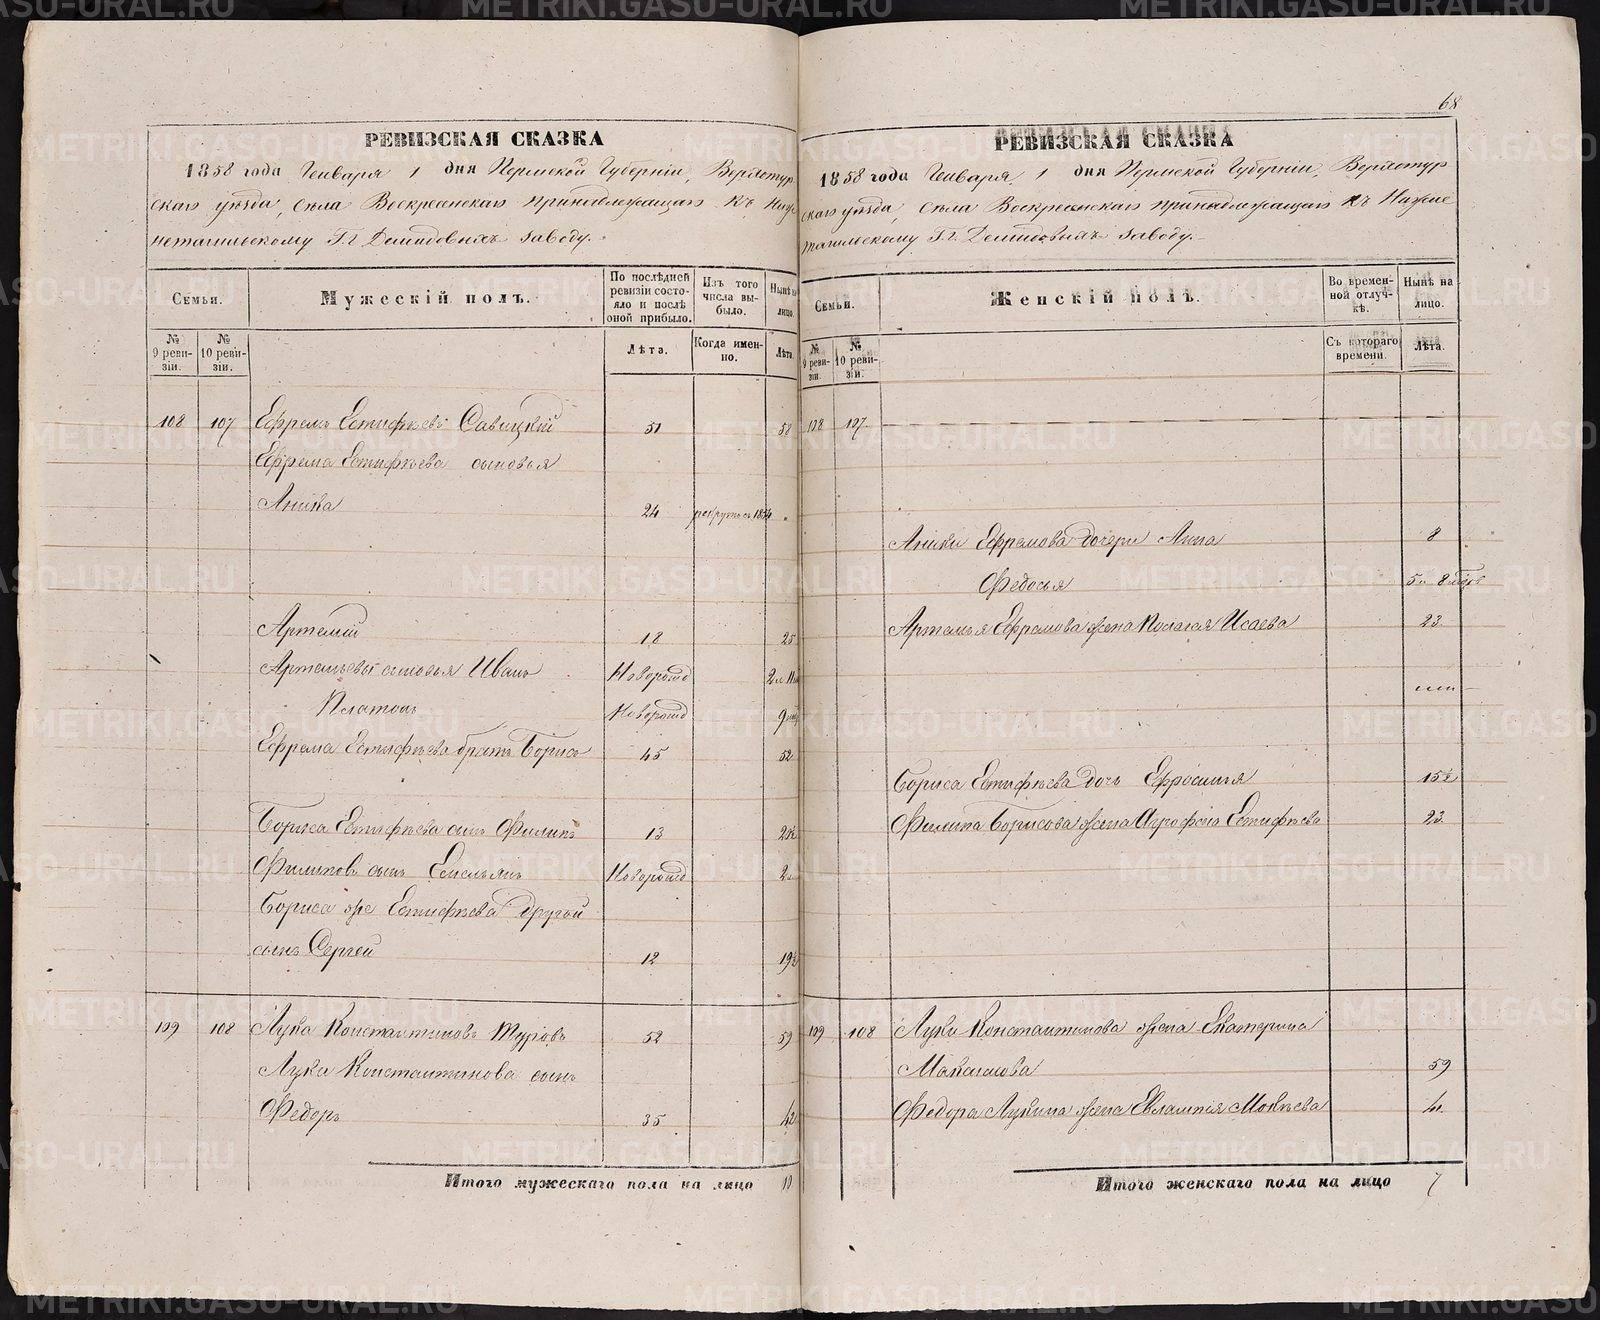 68
РЕВИЗСКАЯ СКАЗКА
1858 года Генваря 1 дня Пермской Губерніи, Верхотур
скаго уѣзда, села Воскресенскаго принадлежащаго къ Ниж
нетагильскому Г.г. Демидовыхъ заводу.
Семьи.
Мужескій полъ.
По послѣдней ревизіи состояло и послѣ оной прибыло.
Изъ того числа выбыло.
Нынѣ на лицо.
№ 9 ревизіи.
№ 10 ревизіи.
Лѣта.
Когда именно.
Лѣта.
108 107 Ефремъ Естифѣевъ Савицкій 51 58
Ефрема Естифѣева сыновья
Аника 24 рекрутъ въ 1854
Артемій 18 25
Артемьевы сыновья Иванъ Новорожд 2
Платонъ Новорожд 9
Ефрема Естифѣева братъ Борисъ 45 52
Бориса Естифѣева сынъ Филипъ 13
Филиповъ сынъ Емельянъ Новорожд 2
Бориса же Естифѣева другой
сынъ Сергей 12 19½
109 108 Лука Константиновъ Туровъ 52 59
Лука Константинова сынъ
Федоръ 35 42
Итого мужескаго пола на лицо 10
РЕВИЗСКАЯ СКАЗКА
1858 года Генваря 1 дня Пермской Губерніи, Верхотур
скаго уѣзда, села Воскресенскаго принадлежащаго къ Нижне
тагильскому Г.г. Демидовыхъ заводу.
Семьи.
Женскій полъ.
Во временной отлучкѣ.
Нынѣ на лицо.
№ 9 ревизіи.
№ 10 ревизіи.
Съ котораго времени.
Лѣта.
108 107
Аники Ефремова дочери Анна 8
Федосья 5
Артемья Ефремова жена Пелагея Исаева 23
Бориса Естифѣева дочь Ефросинья 15½
Филипа Борисова жена Агрофена Естифѣева 23
109 108 Луки Константинова жена Екатерина
Макасова 59
Федора Лукина жена Евлампія Мокѣева 41
Итого женскаго пола на лицо 7
METRIKI.GASO-URAL.RU